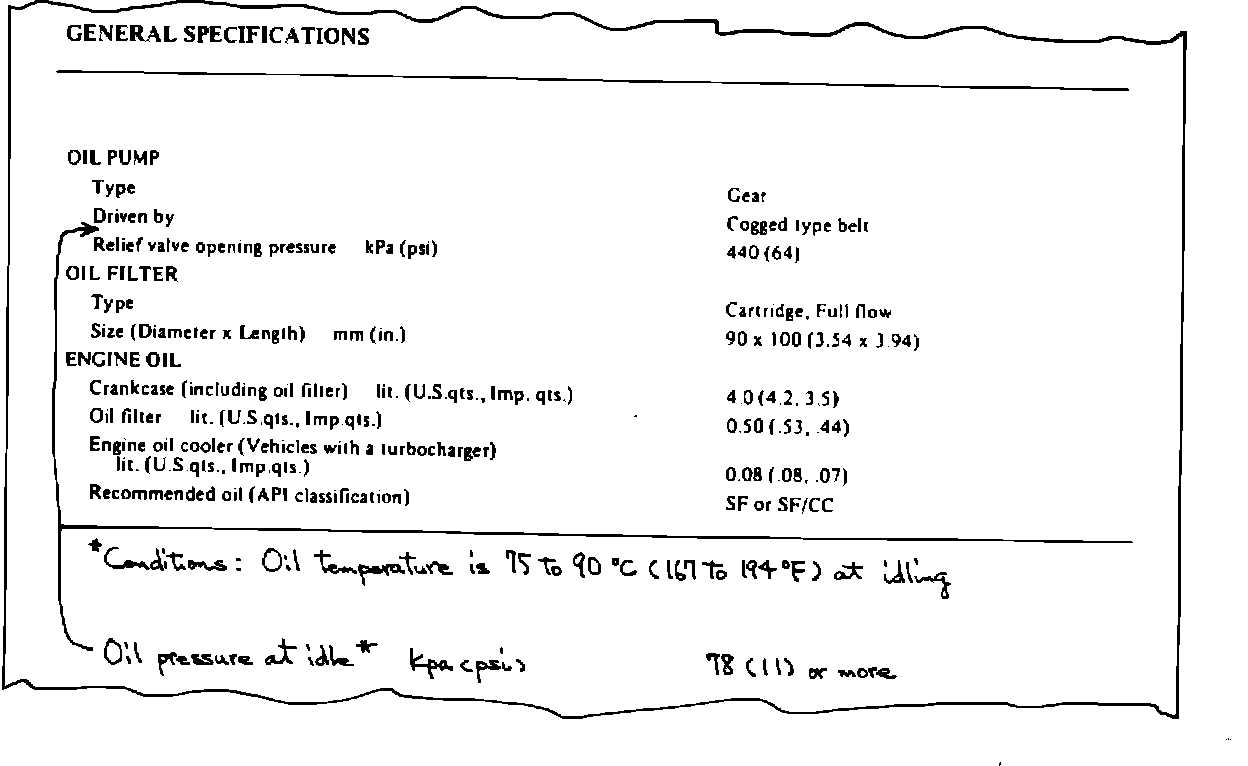 GENERAL SPECIFICATIONS
OIL PUMP
Type Gear
Driven by Cogged type belt
Relief valve opening pressure kPa (psi) 440 (64)
OIL FILTER
Type Cartridge, Full flow
Size (Diameter x Length) mm (in.) 90 x 100 (3.54 x 3.94)
ENGINE OIL
Crankcase (including oil filter) lit. (U.S.qts., Imp. qts.) 4.0 (4.2, 3.5)
Oil filter lit. (U.S.qts., Imp.qts.) 0.50 (.53, .44)
Engine oil cooler (Vehicles with a turbocharger)
lit. (U.S.qts., Imp.qts.) 0.08 (.08, .07)
Recommended oil (API classification) SF or SF/CC
*Conditions: Oil temperature is 75 to 90 °C (167 to 194 °F) at idling
Oil pressure at idle* kpa (psi) 78 (11) or more